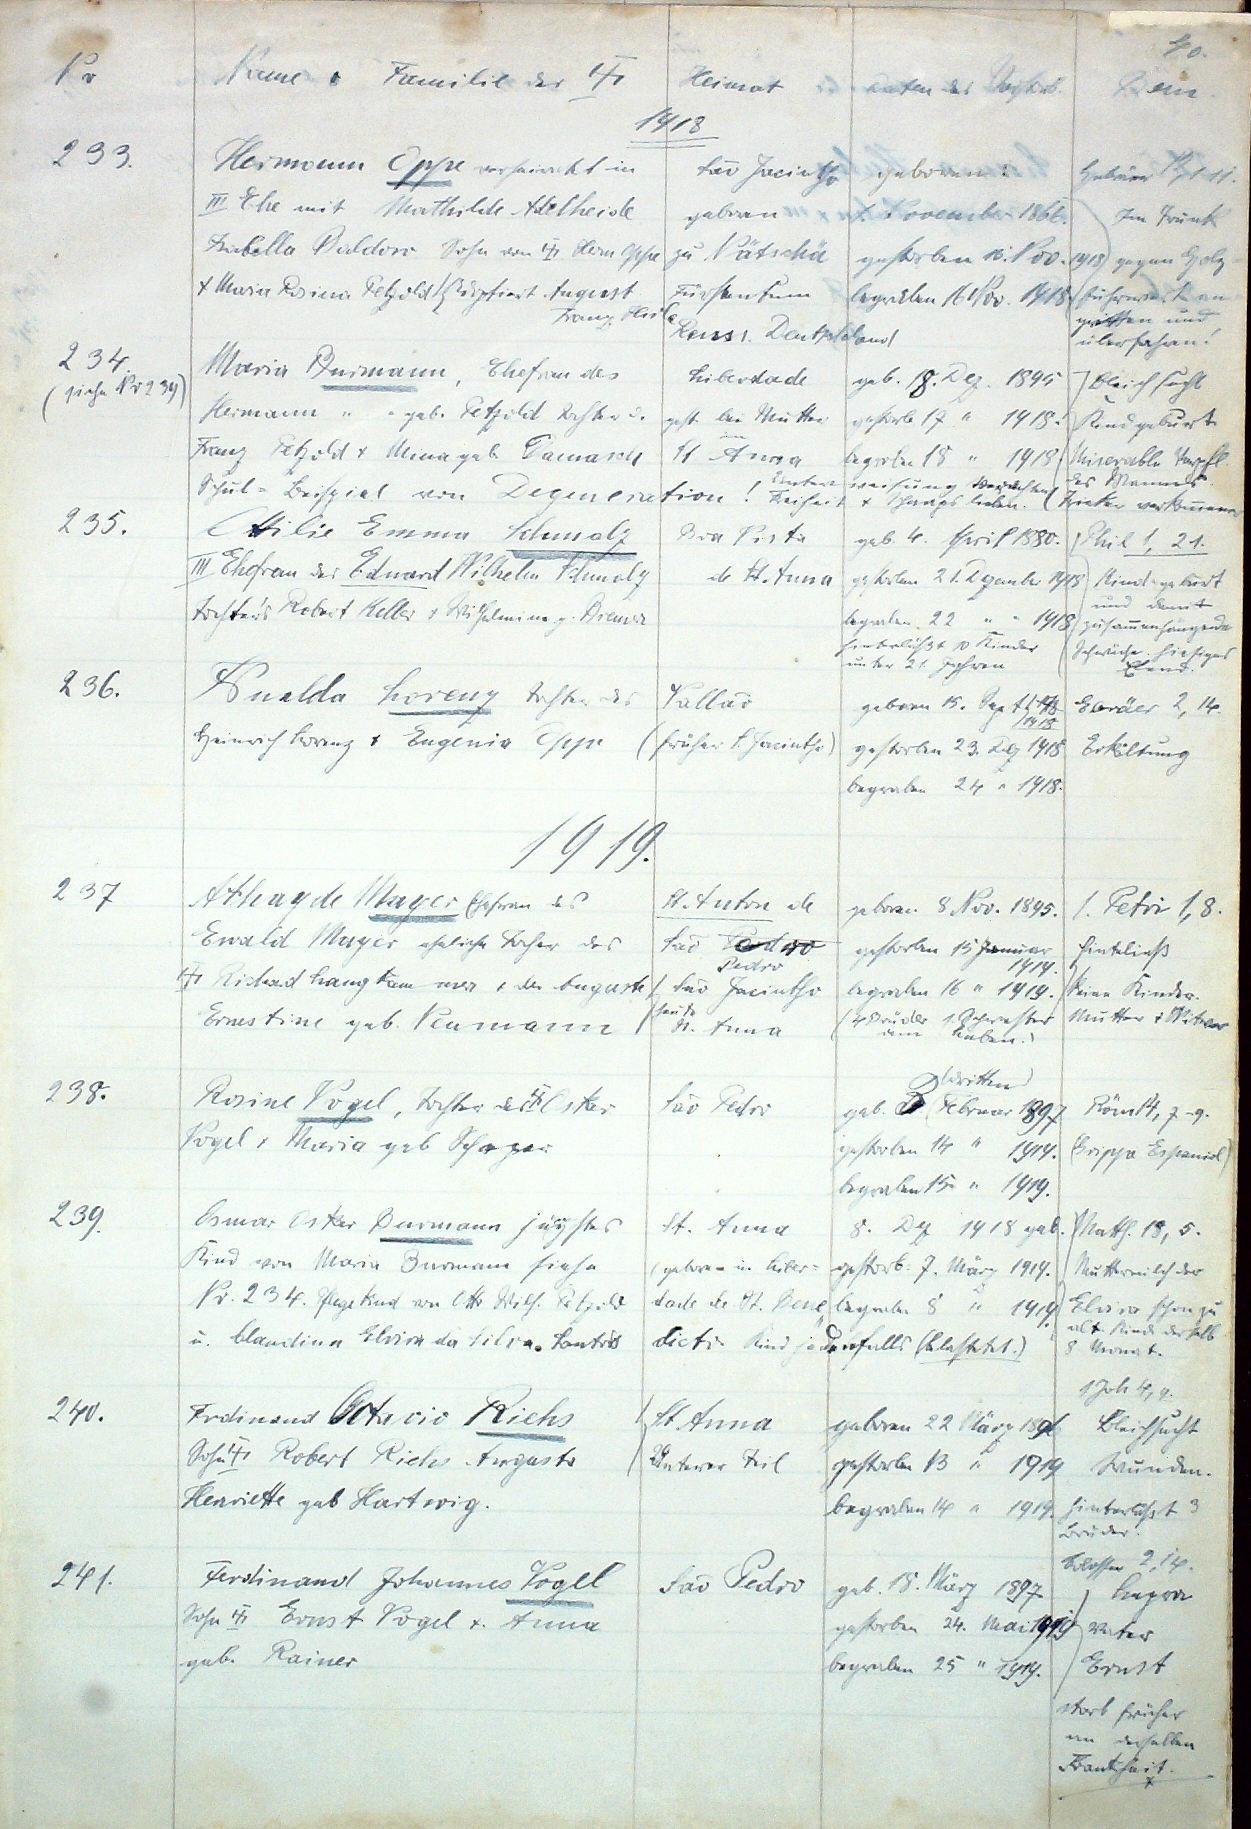 40.
Nr Name & Familie der Heimat Daten des Bem.
1918
233. Hermann Oppe verheiratet in São Jacintho geboren: Hebräer
III Ehe mit Mathilde Adelheide geboren November 1866. Im Trunk
Isabella Baldoro Sohn von Herm Oppe zu gestorben 16. Nov. 1918 gegen Holz-
+ Maria Rosina Petzold August Fürstentum begraben 16 Nov. 1918 fuhrwerk an-
Franz Reuss. Deutschland geritten und
überfahren!
234. Maria Burmann, Ehefrau des Liberdade geb. 18. Dez. 1895 Bleichsucht
(siehe Nr 239)
Hermann " " geb. Petzold Tochter d. gest. bei Mutter gestorb 17 " 1918. Kindgeburt
Franz Petzold + Minna geb. Damasch in St Anna begraben 18 " 1918 Miserable Verpfl.
Schul-Beispiel von Degeneration! des Mannes.
235. Ottilie Emma Schmalz Boa Vista geb. 4. April 1880. Phil 1, 21.
III Ehefrau des Eduard Wilhelm Schmalz de St. Anna gestorben 21. Dezember 1918 Kindgeburt
Tochter d. Robert Keller + Wilhelmine g. Bremer begraben 22 " " 1918 und damit
zusammenhängende
hinterläßt 10 Kinder Schwäche.
unter 21 Jahren Elend.
236. Lorenz Tochter des Vallão geboren 15. Sept 1918 2, 14.
Heinrich Lorenz + Eugenia Oppe (früher S. Jacintho) gestorben 23. Dez 1918 Erkältung
begraben 24 " 1918.
1919.
237 Athayde Mayer Ehefrau des St. Anton de geboren 8 Nov. 1895. 1. Petri 1, 8.
Ewald Mayer eheliche Tochter des São Pedro gestorben 15 Januar hinterließ
Pedro 1919.
Richard Langkammer & der Auguste São Jacintho begraben 16 " 1919. keine Kinder.
Ernestine geb. Neumann heute St. Anna (4 Brüder 1. Schwester Mutter + Witwer
leben.)
238. Rosine Vogel, Tochter des Oskar São Pedro geb. 3 (dritten) Februar 1897 Röm 14, 7-9.
Vogel & Maria geb gestorben 14 " 1919. (Grippe Espaniol)
begraben 15 " 1919.
239. Osmar Oskar Burmann jüngstes St. Anna 8. Dez 1918 geb. Math. 18, 5.
Kind von Maria Burmann siehe (geboren in Liber- gestorb. 7. März 1919. Muttermilch der
Nr. 234. Pflegekind von Otto Wilh. Petzold dade de St. Bene begraben 8 " 1919 Elvira schon zu
u. Claudina Elvira da Silva Santos dicto. Kind jedenfalls (belastet.) alt. Kind derselb
8 Monat.
240. Ferdinand Octavio Riehs St Anna geboren 22 März 1896 1 Joh 4, 9.
Bleichsucht
Sohn Robert Riehs Auguste Unterer Teil gestorben 13 " 1919 Wunden.
Henriette geb Hartwig. begraben 14 " 1919. hinterläßt 3
Brüder.
241. Ferdinand Johannes Vogel São Pedro geb. 18. März 1897 Colosser 2, 14.
Lepra
Sohn Ernst Vogel +. Anna gestorben 24. Mai 1919 Vater
geb. Rainer begraben 25 " 1919. Ernst
starb früher
an derselben
Krankheit.